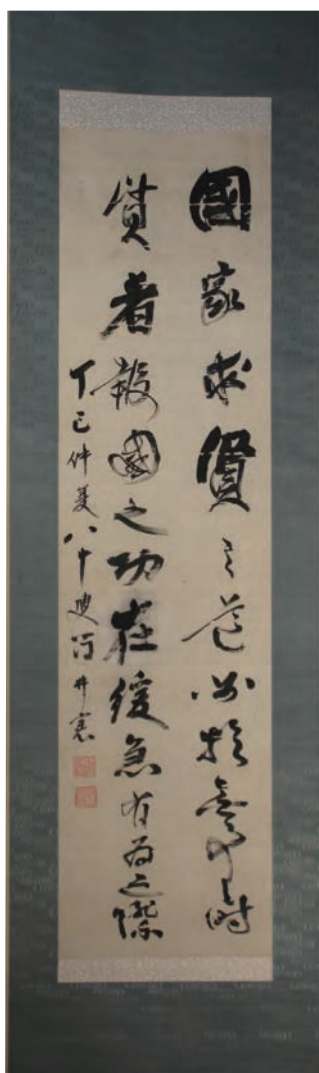 國家求賢之道必於無事之時
賢者報國之功在緩急有為之際
丁巳仲夏八十叟